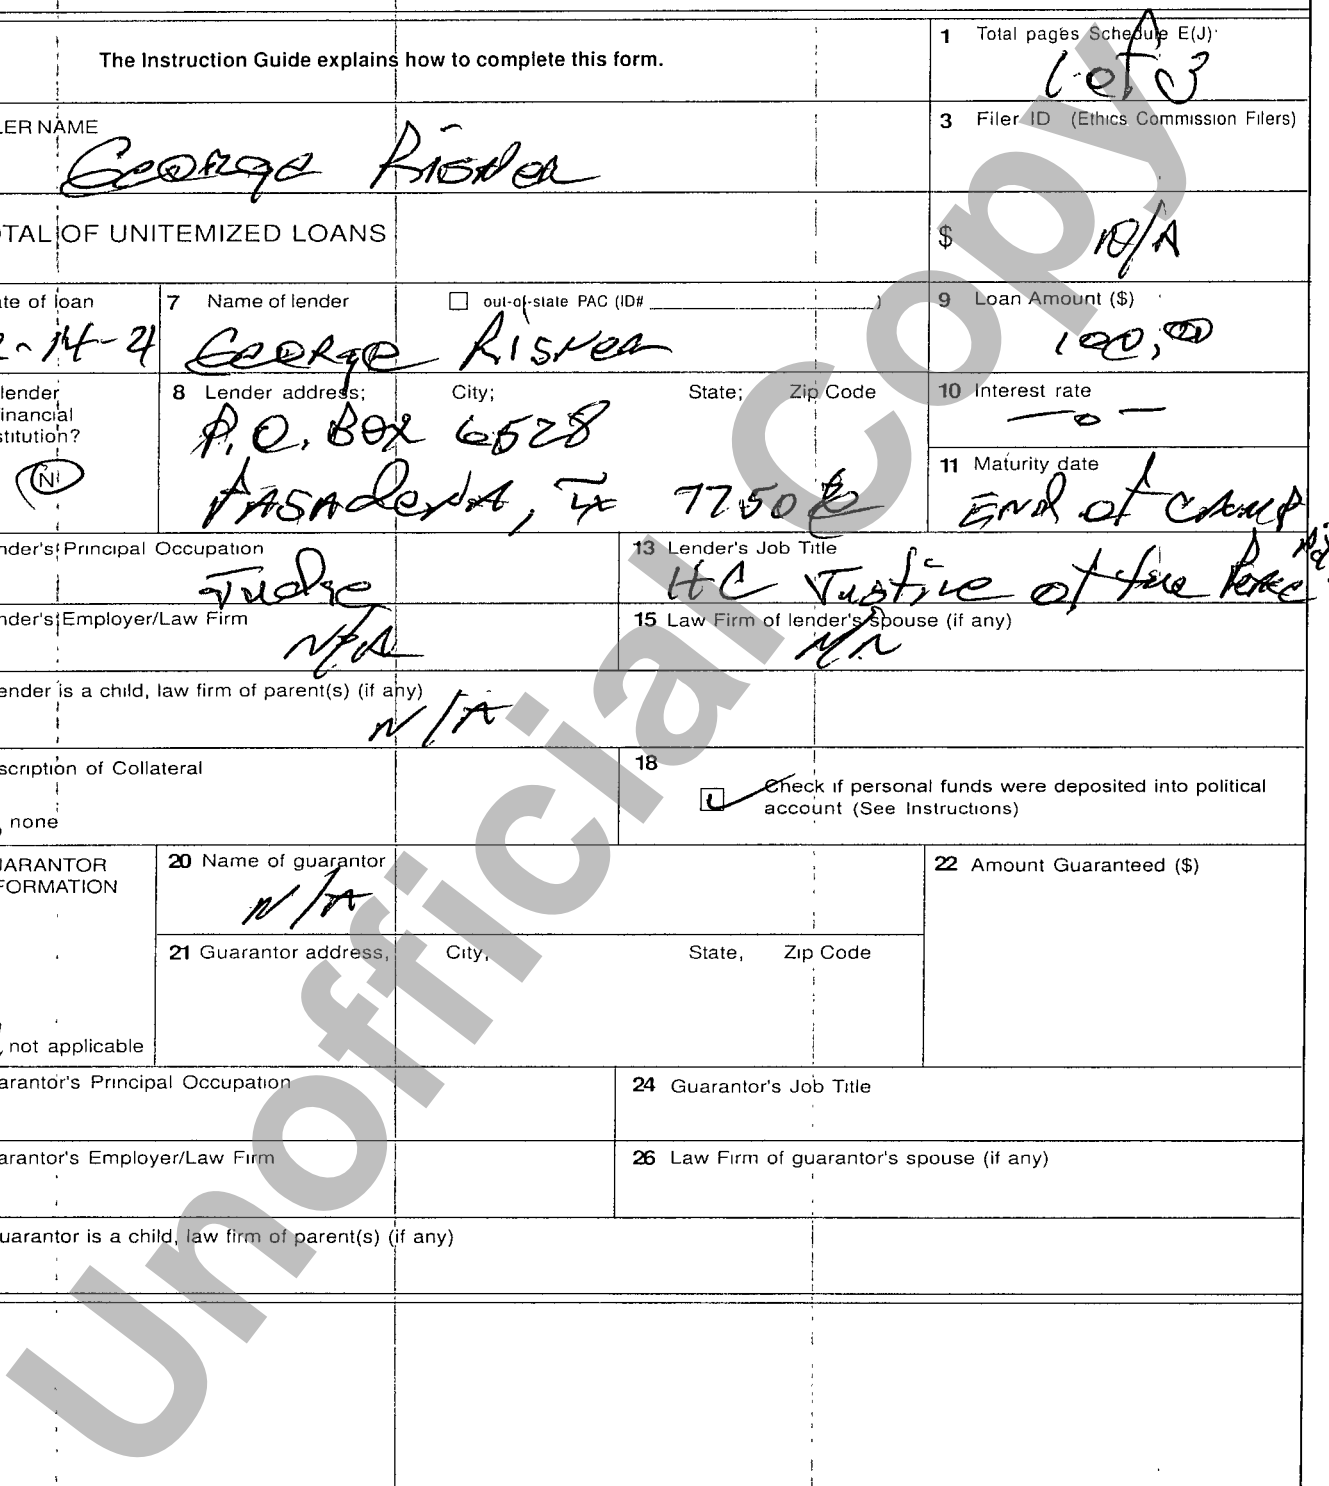 The Instruction Guide explains how to complete this form.
1 Total pages Schedule E(J)
1 of 3
LER NAME
George Risner
3 Filer ID (Ethics Commission Filers)
OTAL OF UNITEMIZED LOANS
$ N/A
ate of loan
2-14-21
7 Name of lender
out-of-state PAC (ID# )
George Risner
9 Loan Amount ($)
100.00
lender
inancial
stitution?
N
8 Lender address; City; State; Zip Code
P.O. Box 6528
Pasadena, Tx 77506
10 Interest rate
-0-
11 Maturity date
End of
nder's Principal Occupation
Judge
13 Lender's Job Title
HC Justice of the Peace
nder's Employer/Law Firm
N/A
15 Law Firm of lender's spouse (if any)
N/A
ender is a child, law firm of parent(s) (if any)
N/A
scription of Collateral
none
18
Check if personal funds were deposited into political
account (See Instructions)
UARANTOR
FORMATION
not applicable
20 Name of guarantor
N/A
22 Amount Guaranteed ($)
21 Guarantor address, City, State, Zip Code
arantor's Principal Occupation
24 Guarantor's Job Title
arantor's Employer/Law Firm
26 Law Firm of guarantor's spouse (if any)
uarantor is a child, law firm of parent(s) (if any)
Unofficial Copy